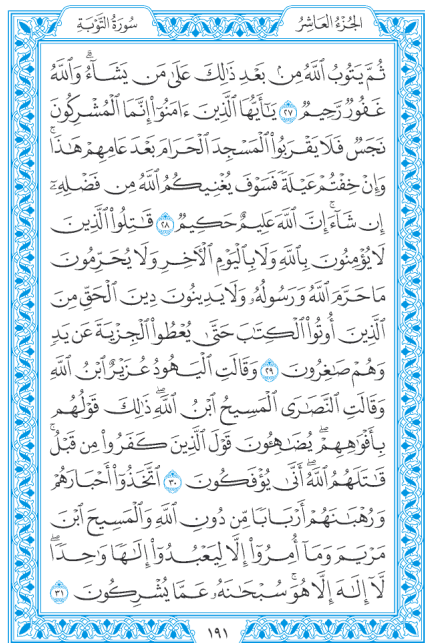 الجُزْءُ العَاشِرُ سُورَةُ التَّوْبَةِ
ثُمَّ يَتُوبُ ٱللَّهُ مِنۢ بَعْدِ ذَٰلِكَ عَلَىٰ مَن يَشَآءُۗ وَٱللَّهُ
غَفُورٌ رَّحِيمٌ ٢٧ يَـٰٓأَيُّهَا ٱلَّذِينَ ءَامَنُوٓا۟ إِنَّمَا ٱلْمُشْرِكُونَ
نَجَسٌ فَلَا يَقْرَبُوا۟ ٱلْمَسْجِدَ ٱلْحَرَامَ بَعْدَ عَامِهِمْ هَـٰذَاۚ
وَإِنْ خِفْتُمْ عَيْلَةً فَسَوْفَ يُغْنِيكُمُ ٱللَّهُ مِن فَضْلِهِۦٓ
إِن شَآءَۚ إِنَّ ٱللَّهَ عَلِيمٌ حَكِيمٌ ٢٨ قَـٰتِلُوا۟ ٱلَّذِينَ
لَا يُؤْمِنُونَ بِٱللَّهِ وَلَا بِٱلْيَوْمِ ٱلْـَٔاخِرِ وَلَا يُحَرِّمُونَ
مَا حَرَّمَ ٱللَّهُ وَرَسُولُهُۥ وَلَا يَدِينُونَ دِينَ ٱلْحَقِّ مِنَ
ٱلَّذِينَ أُوتُوا۟ ٱلْكِتَـٰبَ حَتَّىٰ يُعْطُوا۟ ٱلْجِزْيَةَ عَن يَدٍ
وَهُمْ صَـٰغِرُونَ ٢٩ وَقَالَتِ ٱلْيَهُودُ عُزَيْرٌ ٱبْنُ ٱللَّهِ
وَقَالَتِ ٱلنَّصَـٰرَى ٱلْمَسِيحُ ٱبْنُ ٱللَّهِۖ ذَٰلِكَ قَوْلُهُم
بِأَفْوَٰهِهِمْۖ يُضَـٰهِـُٔونَ قَوْلَ ٱلَّذِينَ كَفَرُوا۟ مِن قَبْلُۚ
قَـٰتَلَهُمُ ٱللَّهُۖ أَنَّىٰ يُؤْفَكُونَ ٣٠ ٱتَّخَذُوٓا۟ أَحْبَارَهُمْ
وَرُهْبَـٰنَهُمْ أَرْبَابًا مِّن دُونِ ٱللَّهِ وَٱلْمَسِيحَ ٱبْنَ
مَرْيَمَ وَمَآ أُمِرُوٓا۟ إِلَّا لِيَعْبُدُوٓا۟ إِلَـٰهًا وَٰحِدًاۖ
لَّآ إِلَـٰهَ إِلَّا هُوَۚ سُبْحَـٰنَهُۥ عَمَّا يُشْرِكُونَ ٣١
١٩١